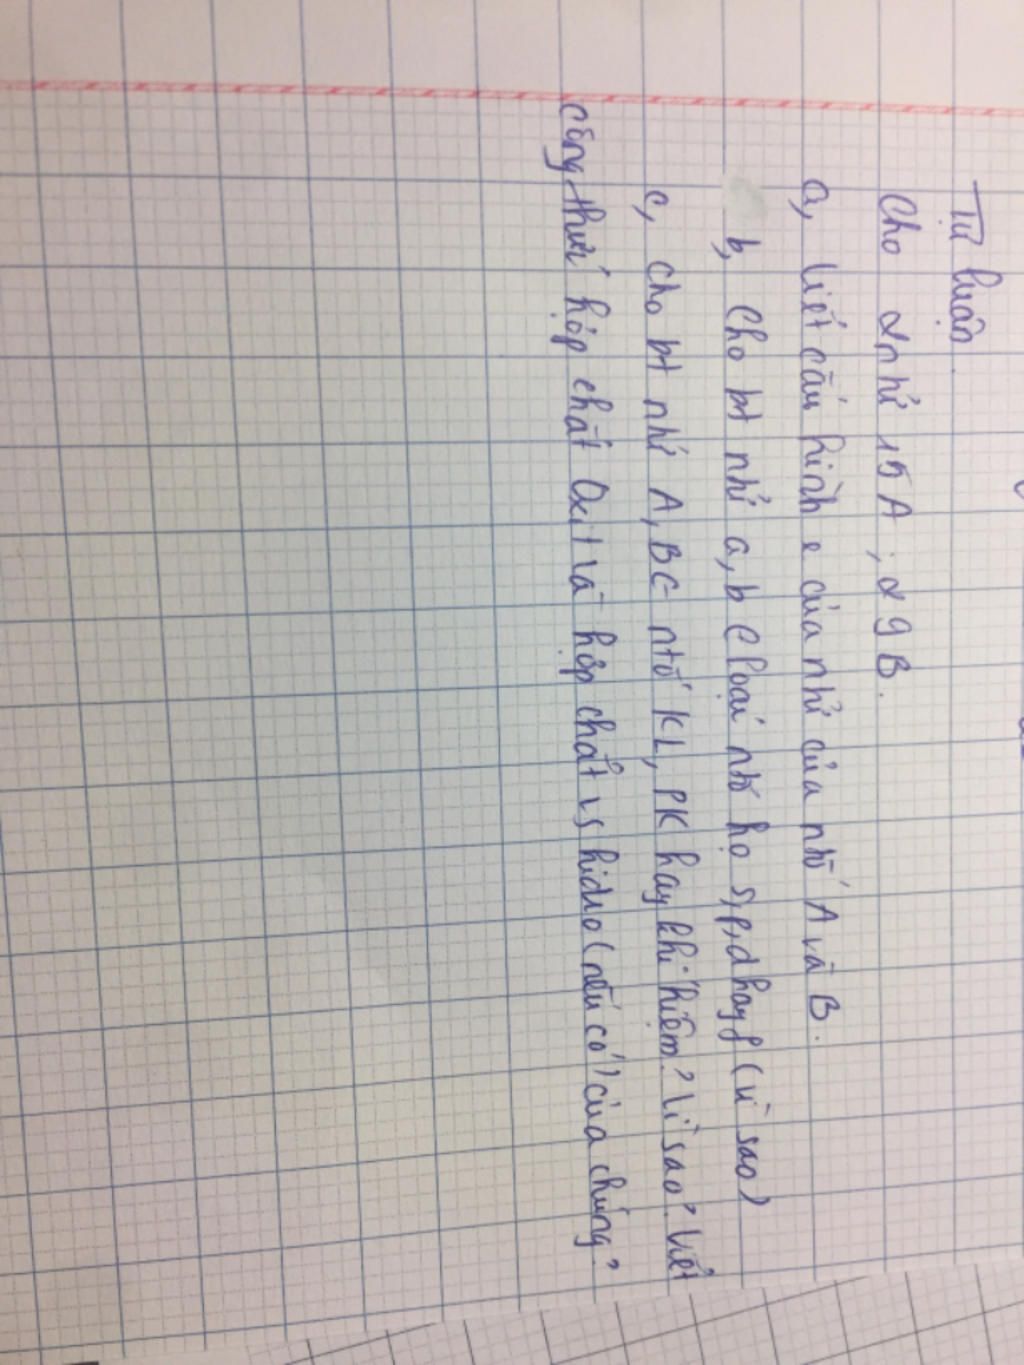 Tự luận
Cho 2 nhử 15 A ; 29 B.
a, Viết cấu hình e của nhử của ntố A và B.
b, Cho bt nhử a, b ∈ loại ntố họ s, p, d hay f (vì sao)
c, cho bt nhử A, B ∈ ntố KL, PK hay khí hiếm? Vì sao? Viết
công thức hợp chất Oxit và hợp chất vs hidro (nếu có) của chúng?